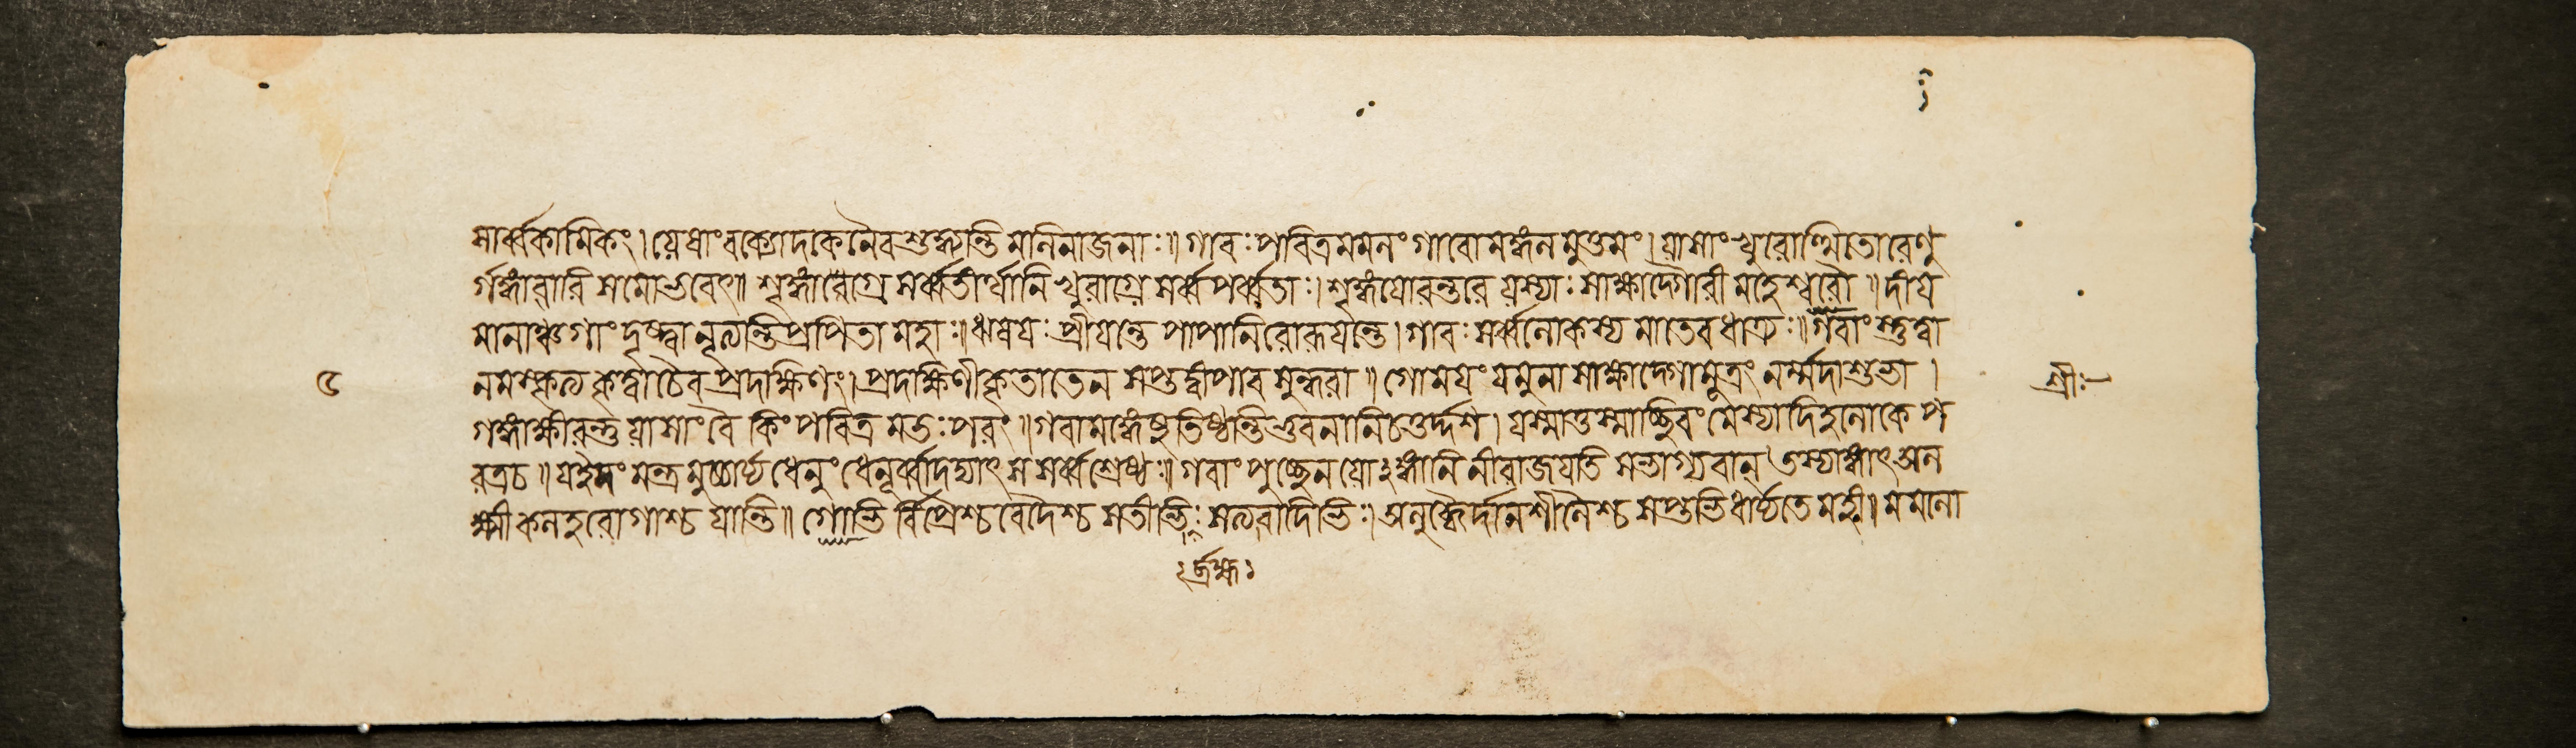 সার্ব্বকামিকং। যেষাংবক্যোদকেনৈবশুদ্ধ্যন্তি মানিনাজনাঃ॥ গাবঃ পবিত্রমমলং গাবো মঙ্গলমুত্তমং। যাসাংখুরোত্থিতোরেণু
র্গঙ্গাবারি সমোভবেৎ॥ শৃঙ্গাগ্রে সর্ব্বতীর্থানি খুরাগ্রে সর্ব্বপর্ব্বতাঃ। শৃঙ্গয়োরন্তরে যস্যাঃ সাক্ষাদ্গৌরী মহেশ্বরৌ॥ দীয়
মানাঞ্চ গাং দৃষ্ট্বা নৃত্যন্তি প্রপিতামহাঃ। ঋষয়ঃ প্রীয়ন্তে গাবঃ সর্ব্বলোকস্য মাতেব গবাং স্তুত্বা
নমস্কৃত্য কৃত্বা চৈব প্রদক্ষিণং। প্রদক্ষিণীকৃতা তেন সপ্তদ্বীপা বসুন্ধরা॥ গোময়ং যমুনা সাক্ষাদ্গোমূত্রং নর্ম্মদাশুভা।
গঙ্গাক্ষীরন্তু যাসাং বৈ কিং পবিত্র মতঃপরং॥ গবামঙ্গেষু তিষ্ঠন্তি ভুবনানি চতুর্দ্দশ। যস্মাত্তস্মাচ্ছিবং মেস্যাদিহলোকে প
রত্রচ॥ যইদং মন্ত্রমুচ্চার্য্য ধেনুং দদ্যাৎ স সর্ব্বশ্রেষ্ঠঃ॥ গবাং পুচ্ছেন যোঽঙ্গানি নীরাজয়তি সভাগ্যবান্ তস্যাঙ্গাৎ অল
ক্ষ্মী কলহরোগাশ্চ যান্তি॥ গোভি র্বিপ্রৈশ্চ বেদৈশ্চ সতীভিঃ সত্যবাদিভিঃ। অলুব্ধৈর্দানশীলৈশ্চ সপ্তভির্ধার্য্যতে মহী।
৫
শ্রীঃ